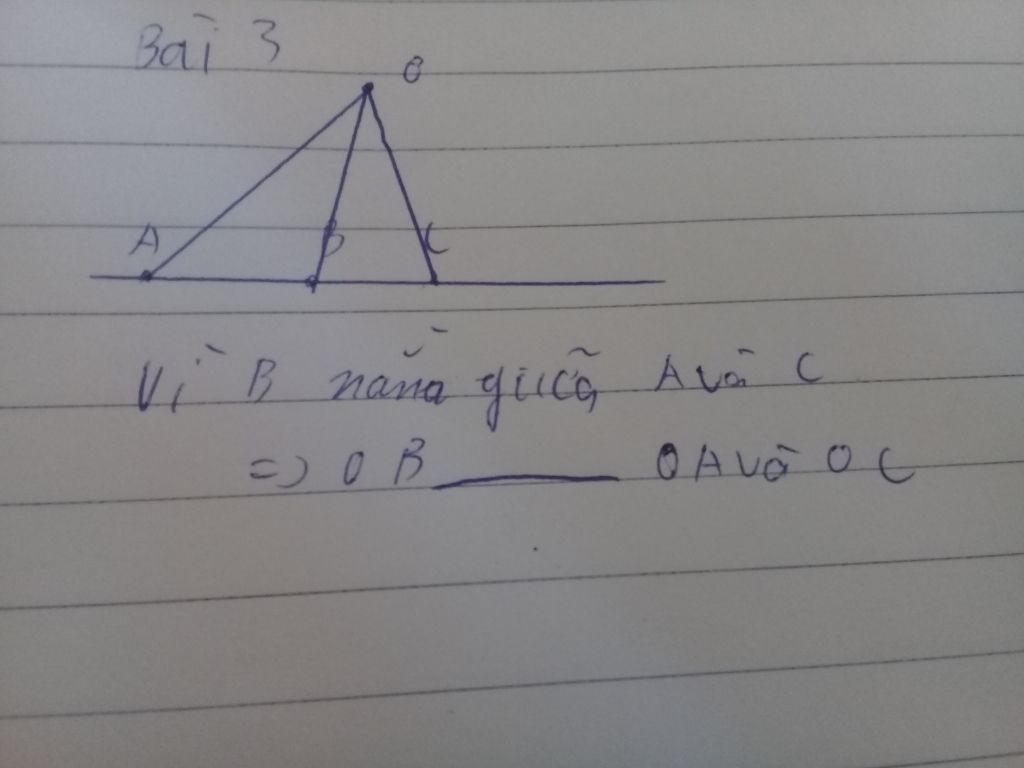 Bài 3
O
A B C
Vì B nằm giữa A và C
=> OB ______ OA và OC